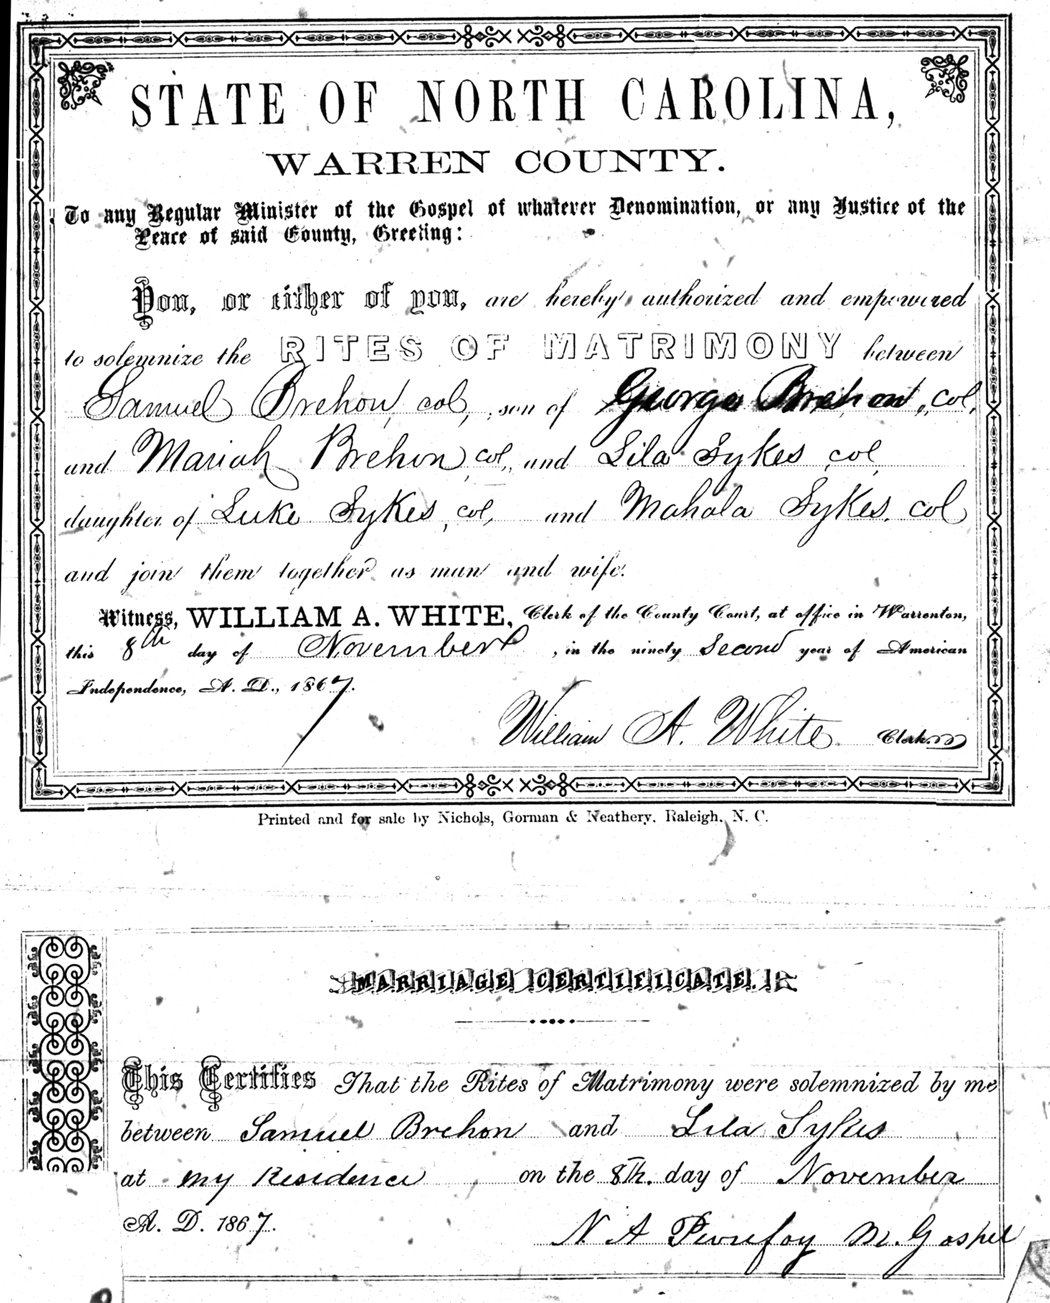 STATE OF NORTH CAROLINA,
WARREN COUNTY.
To any Regular Minister of the Gospel of whatever Denomination, or any Justice of the
Peace of said County, Greeting:
You, or either of you, are hereby authorized and empowered
to solemnize the RITES OF MATRIMONY between
Samuel Brehon, col, son of George Brehon, col,
and Mariah Brehon col, and Lila Sykes col,
daughter of Luke Sykes, col, and Mahala Sykes. col
and join them together as man and wife.
Witness, WILLIAM A. WHITE, Clerk of the County Court, at office in Warrenton,
this 8th day of November, in the ninety Second year of American
Independence, A. D., 1867.
William A. White Clerk
Printed and for sale by Nichols, Gorman & Neathery, Raleigh, N. C.
MARRIAGE CERTIFICATE.
This Certifies That the Rites of Matrimony were solemnized by me
between Samuel Brehon and Lila Sykes
at my Residence on the 8Th. day of November
A. D. 1867.
N A Purefoy M. Gospel